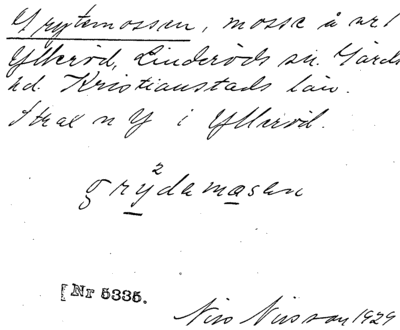 Grytsmossen, mosse å nr 1
Ullerød, Linderöds sn. Gärds
hd. Kristianstads län.
Strax n Y i Ullerød.
grỹdamasen
[Nr 5335.
Nils Nilsson 1929